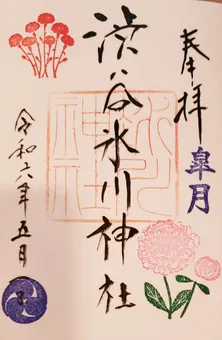 奉拝
皐月
渋谷氷川神社
令和六年五月